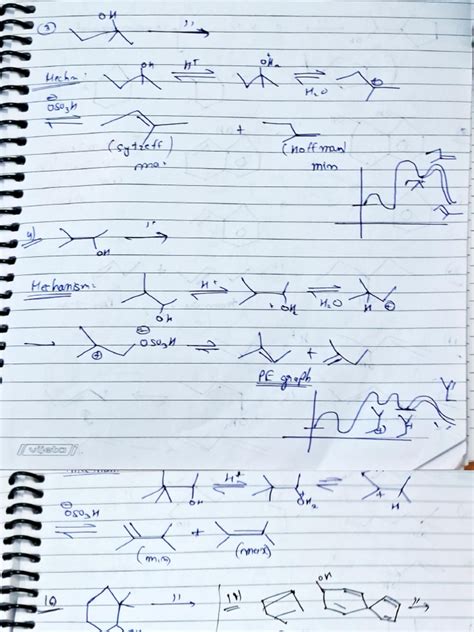 ③ OH ''
Mechn: OH H⁺ OH₂ H₂O ⊕
⊖
OSO₃H + 
(Sytzeff) (Hoffman)
min
4) OH ''
Mechanism: OH H⁺ OH H₂O H ⊕
⊕ ⊖ OSO₃H +
PE graph
vijeta
OH H⁺ OH₂ + H
⊖
OSO₃H +
(min) (max)
16) OH '' OH ''